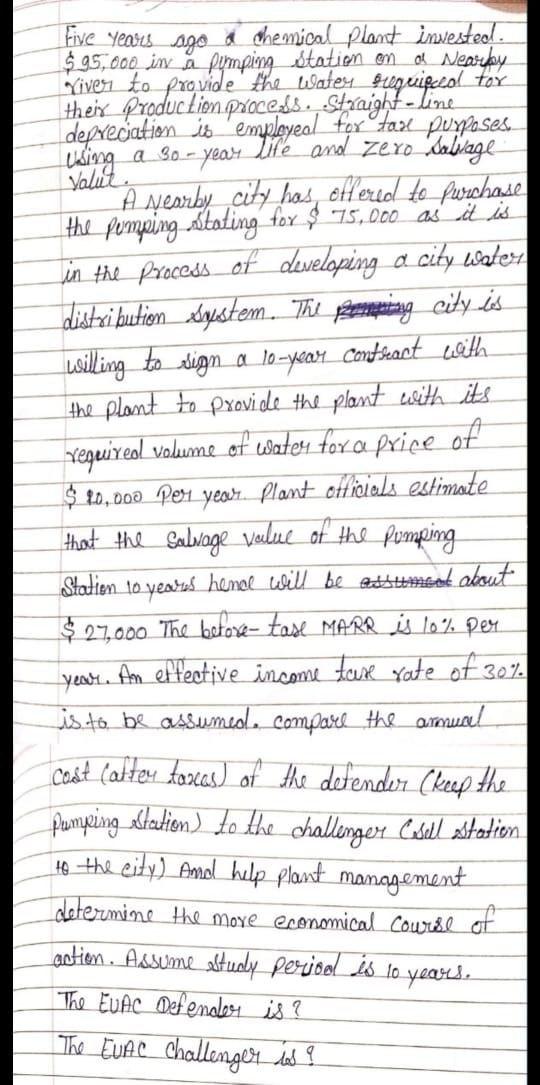 Five years ago a chemical plant invested.
$95,000 in a pumping station on a Nearby
river to provide the water required for
their production process. Straight-line
depreciation is employed for tax purposes
using a 30-year life and zero salvage
Value.
A Nearby city has offered to purchase
the pumping stating for $ 75,000 as it is
in the process of developing a city water
distribution system. The city is
willing to sign a 10-year contract with
the plant to provide the plant with its
required volume of water for a price of
$ 10,000 per year. Plant officials estimate
that the Salvage value of the pumping
Station 10 years hence will be about
$ 27,000 The before-tax MARR is 10% per
year. An effective income tax rate of 30%
is to be assumed. compare the annual
cost (after taxes) of the defender (keep the
pumping station) to the challenger (sell station
to the city) And help plant management
determine the more economical course of
action. Assume study period is 10 years.
The EUAC Defender is ?
The EUAC Challenger is ?